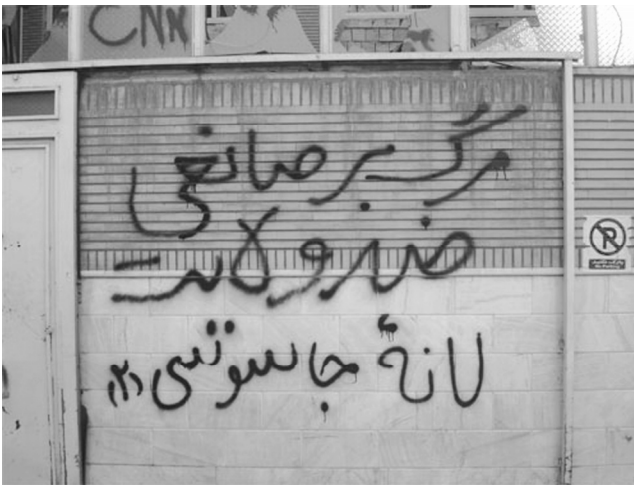 CNK
مرگ بر صانعی
ضد ولایت
لانهٔ جاسوسی (۲)